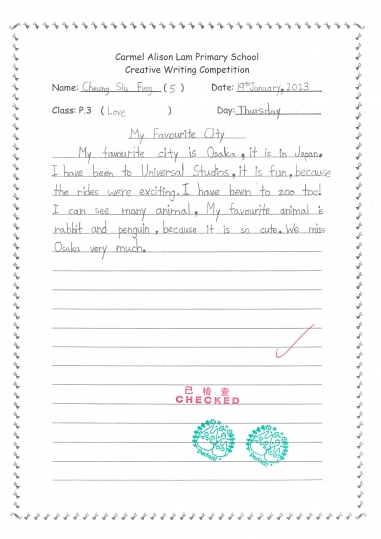 Carmel Alison Lam Primary School
Creative Writing Competition
Name: Cheung Siu Fung (5) Date: 19th January, 2023
Class: P.3 (Love) Day: Thursday
My Favourite City
My favourite city is Osaka, it is in Japan.
I have been to Universal Studios, it is fun, because
the rides were exciting. I have been to zoo too!
I can see many animal, My favourite animal is
rabbit and penguin, because it is so cute. We miss
Osaka very much.
已檢查
CHECKED
Perfect!
Perfect!